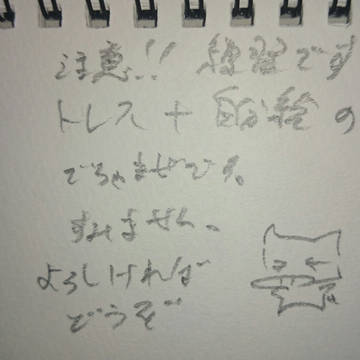 注意!! 練習です
トレス+自分絵の
ごちゃまぜです。
すみません。
よろしければ
どうぞ